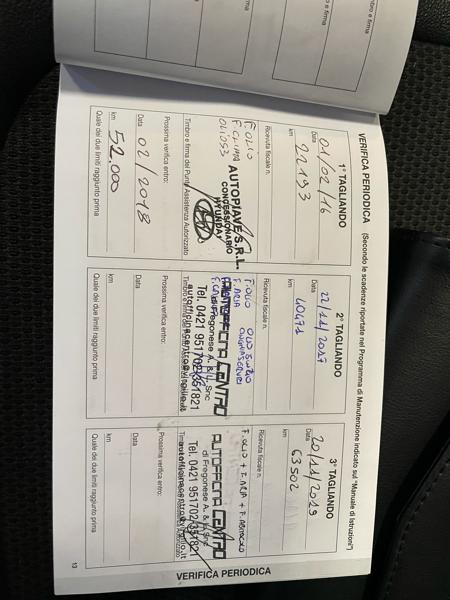 VERIFICA PERIODICA (Secondo le scadenze riportate nel Programma di Manutenzione indicato sul "Manuale di Istruzioni")
1° TAGLIANDO
Data 01/02/16
km 22193
Ricevuta fiscale n.
F. OLIO
F. CLIMA
AUTOPIAVE S.R.L.
CONCESSIONARIO
HYUNDAI
Timbro e firma del Punto Assistenza Autorizzato
Prossima verifica entro:
Data 02/2018
km 52.000
Quale dei due limiti raggiunto prima
2° TAGLIANDO
Data 22/11/2017
km 40471
Ricevuta fiscale n.
F. OLIO
F. ARIA
AUTOFFICINA CENTRO
di Fregonese A. & U. Snc
Tel. 0421 951702/351821
Prossima verifica entro:
Data
km
Quale dei due limiti raggiunto prima
3° TAGLIANDO
Data 20/11/2019
km 63502
Ricevuta fiscale n.
F. OLIO + F. ARIA + F. ABITACOLO
AUTOFFICINA CENTRO
di Fregonese A. & U. Snc
Tel. 0421 951702/351821
Prossima verifica entro:
Data
km
Quale dei due limiti raggiunto prima
VERIFICA PERIODICA
13